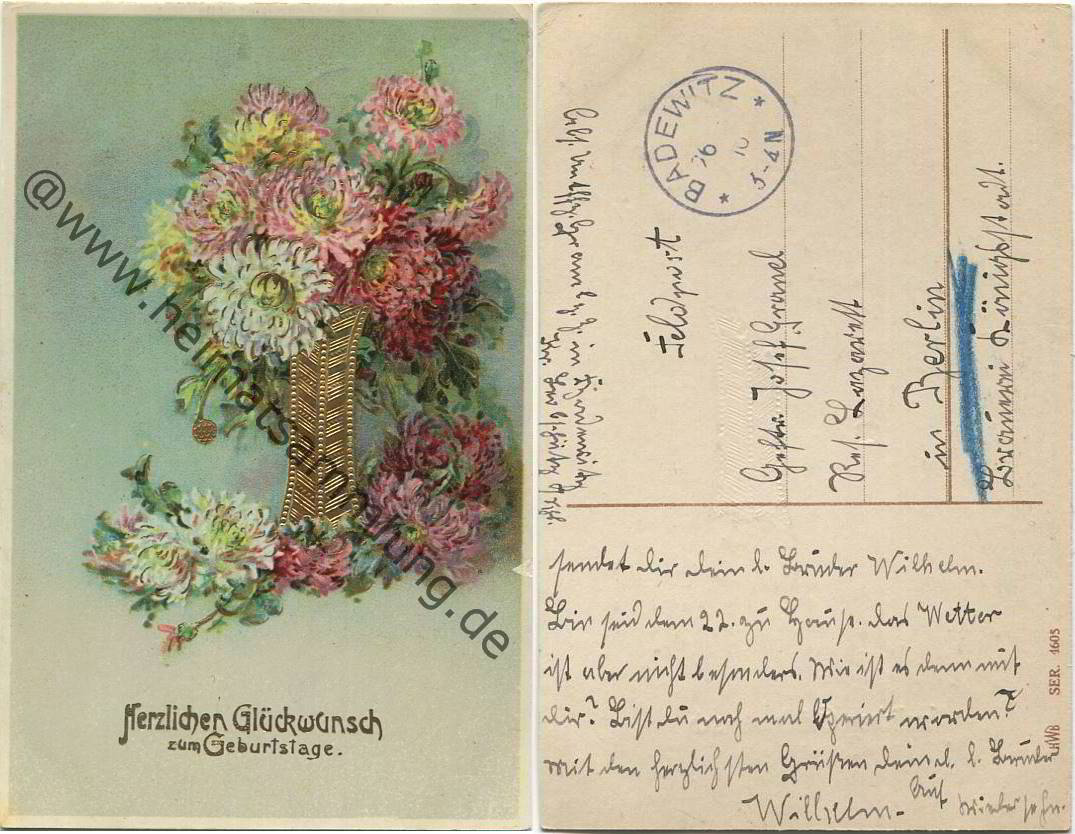 @www.heimatsammlung.de
Herzlichen Glückwunsch
zum Geburtstage.
BADEWITZ
26
10
3-4N
Feldpost
Gefr. Josef
Res. Lazarett
in Berlin
sendet dir dein l. Bruder Wilhelm.
Bin seid dem 22. zu Hause. das Wetter
ist aber nicht besonders. Wie ist es denn mit
dir? Bist du noch mal Operiert worden?
mit den herzlichsten Grüßen dein l. Bruder
Wilhelm. Auf Wiedersehn.
HWB SER. 1603